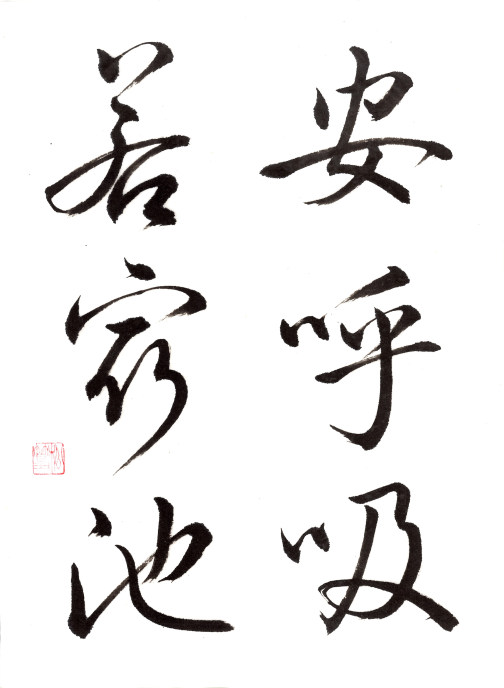 安呼吸
若池